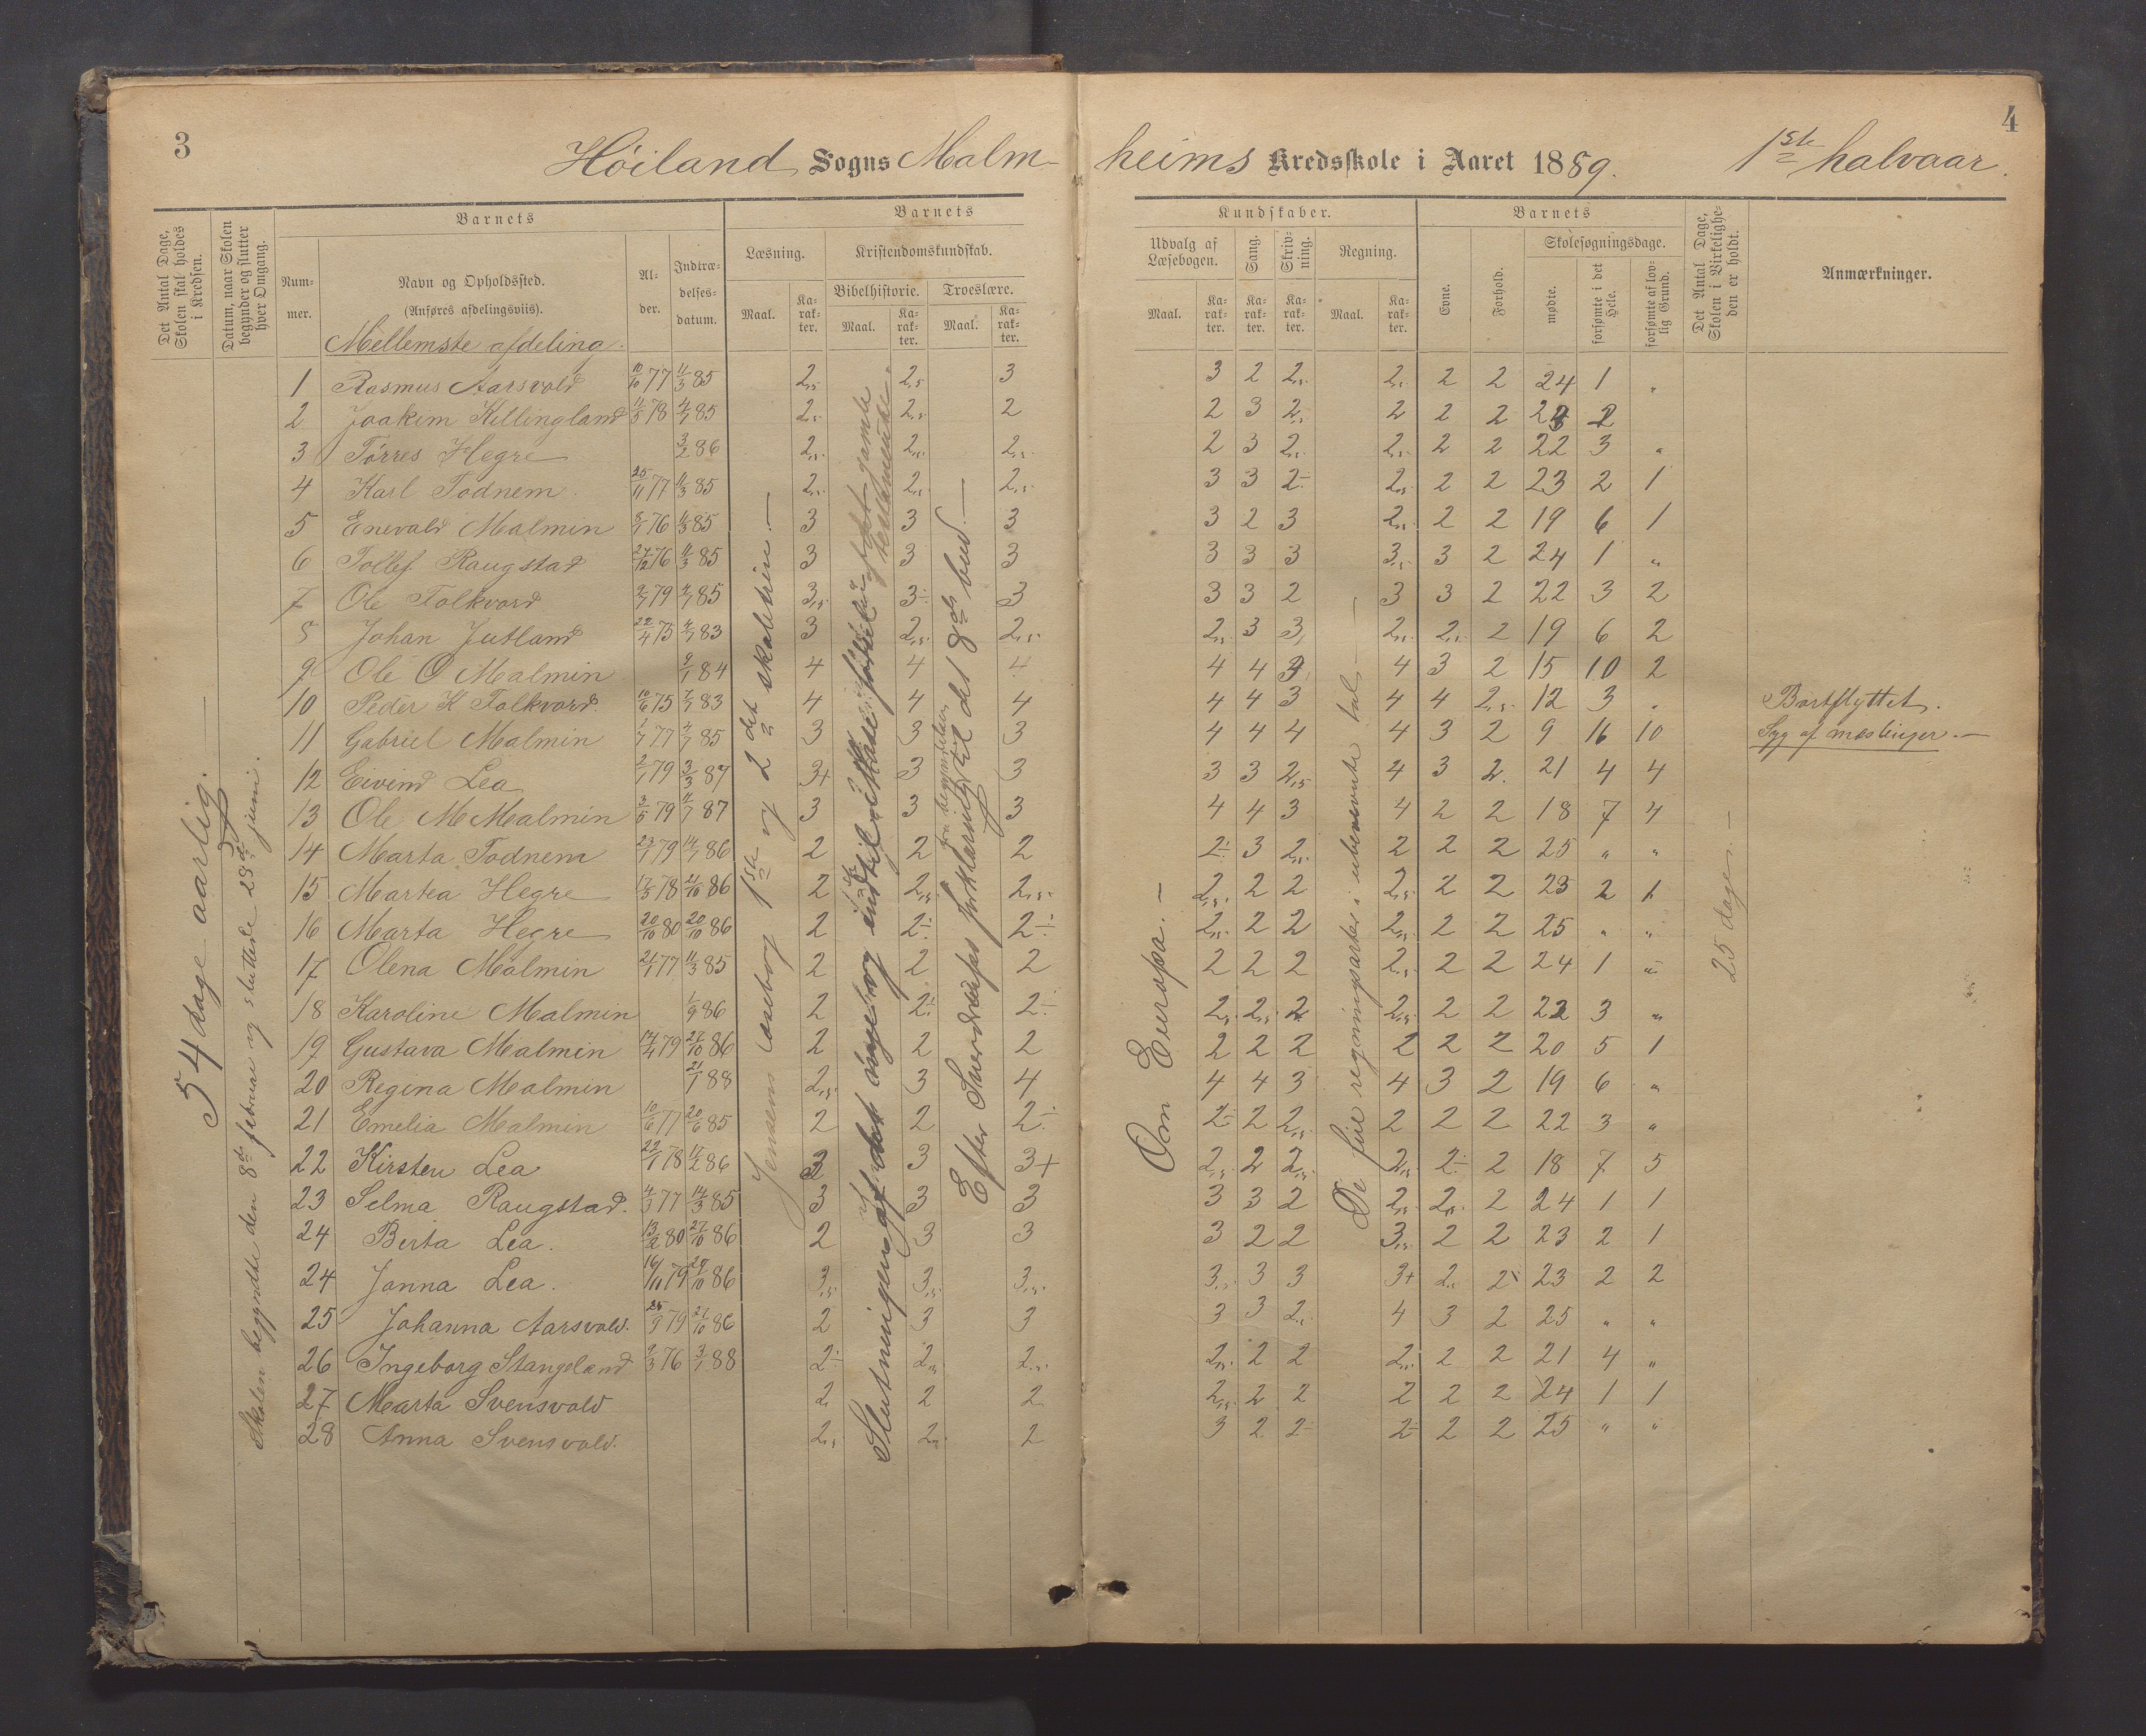 3
4
Höiland Sogns Malmheims Kredsskole i Aaret 1889. 1ste halvaar.
Det Antal Dage, Skolen skal holdes i Kredsen.
Datum, naar Skolen begynder og slutter hver Omgang.
Barnets
Nummer.
Navn og Opholdssted.
(Anføres afdelingsviis).
Alder.
Indtrædelsesdatum.
Barnets
Læsning.
Maal.
Karakter.
Kristendomskundskab.
Bibelhistorie.
Maal.
Karakter.
Troeslære.
Maal.
Karakter.
Kundskaber.
Udvalg af Læsebogen.
Maal.
Karakter.
Sang.
Karakter.
Skrivning.
Karakter.
Regning.
Maal.
Karakter.
Barnets
Evne.
Forhold.
Skolesøgningsdage.
mødte.
forsømte i det Hele.
forsømte af lovlig Grund.
Det Antal Dage, Skolen i Virkeligheden er holdt.
Anmærkninger.
54 dage aarlig.
Skolen begyndte den 8de februar og sluttede 28de juni.
Jensens læsebog 1ste og 2det skoletrin.
Efter Sverdrups forklaring til det 8de bud.
Om Europa.
De fire regningsarter i ubenevnte tal
25 dage.
Mellemste afdeling.
1 Rasmus Aarsvold 10/10 77 11/3 85 2,5 2,5 3 3 2 2,5 2,5 2 2 24 1 "
2 Joakim Killingland 11/5 78 4/7 85 2,5 2,5 2 2 3 2,5 2 2 2
3 Tørres Hegre 3/2 86 2,5 2,5 2,5 2 3 2,5 2,5 2 2 22 3 "
4 Karl Todnem 25/11 77 11/3 85 2,5 2,5 2,5 3 3 2÷ 2,5 2 2 23 2 1
5 Enevald Malmin 8/1 76 11/3 85 3 3 3 3 2 3 2,5 2 2 19 6 1
6 Tollef Raugstad 27/12 76 11/3 85 3 3 3 3 3 3 3,5 3 2 24 1 "
7 Ole Folkvord 2/7 79 4/7 85 3,5 3÷ 3 3 3 2 3 3 2 22 3 2
8 Johan Jutland 22/4 75 4/7 83 3 2,5 2,5 2,5 3 3 2,5 2,5 2 19 6 2
9 Ole O Malmin 9/1 84 4 4 4 4 4 3 4 3 2 15 10 2
10 Peder K Folkvord 10/6 75 7/7 83 4 4 4 4 4 3 4 4 2,5 12 3 " Bortflyttet.
11 Gabriel Malmin 1/7 77 4/7 85 3 3 3 4 4 4 4 3 2 9 16 10 Syg af meslinger.
12 Eivind Lea 2/1 79 3/3 87 3+ 3 3 3 3 2,5 4 3 2 21 4 4
13 Ole M Malmin 3/5 79 11/7 87 3 3 3 4 4 3 4 2 2 18 7 4
14 Marta Todnem 23/1 79 14/7 86 2 2 2 2÷ 3 2,5 2 2 2 25 " "
15 Martea Hegre 17/3 78 21/10 86 2 2,5 2,5 2,5 2 2 2,5 2 2 23 2 1
16 Marta Hegre 20/10 80 20/10 86 2 2÷ 2÷ 2,5 2 2 2,5 2 2 25 " "
17 Olena Malmin 24/1 77 11/3 85 2 2 2 2 2 2 2,5 2 2 24 1 "
18 Karoline Malmin 1/9 86 2 2÷ 2÷ 2,5 2,5 2 2,5 2 2 22 3 "
19 Gustava Malmin 14/4 79 27/10 86 2 2 2 2 2 2 2 2 2 20 5 1
20 Regina Malmin 21/1 88 2,5 3 4 4 4 3 4 3 2 19 6 "
21 Emelia Malmin 10/6 77 20/6 85 2 2 2÷ 2÷ 2 2,5 2 2 2 22 3 "
22 Kirsten Lea 22/1 78 11/2 86 3 3 3+ 2,5 2 2,5 2,5 2÷ 2 18 7 5
23 Selma Raugstad. 4/3 77 14/3 85 3 3 3 3 3 2 2,5 2,5 2 24 1 1
24 Berta Lea. 13/2 80 27/10 86 2 3 3 3 2 2 3,5 2 2 23 2 1
24 Janna Lea. 16/11 79 27/10 86 3,5 3,5 3,5 3,5 3 3 3+ 2,5 2 23 2 2
25 Johanna Aarsvold. 25/9 79 21/10 86 2 3 3 3 3 2,5 4 3 2 25 " "
26 Ingeborg Stangeland 9/3 76 3/1 88 2÷ 2,5 2,5 2,5 2 2 2,5 2 2 21 4 "
27 Marta Svensvold 2 2 2 2,5 2 2 2 2 2 24 1 1
28 Anna Svensvold. 2,5 2,5 2 3 2 2÷ 2÷ 2 2 25 " "